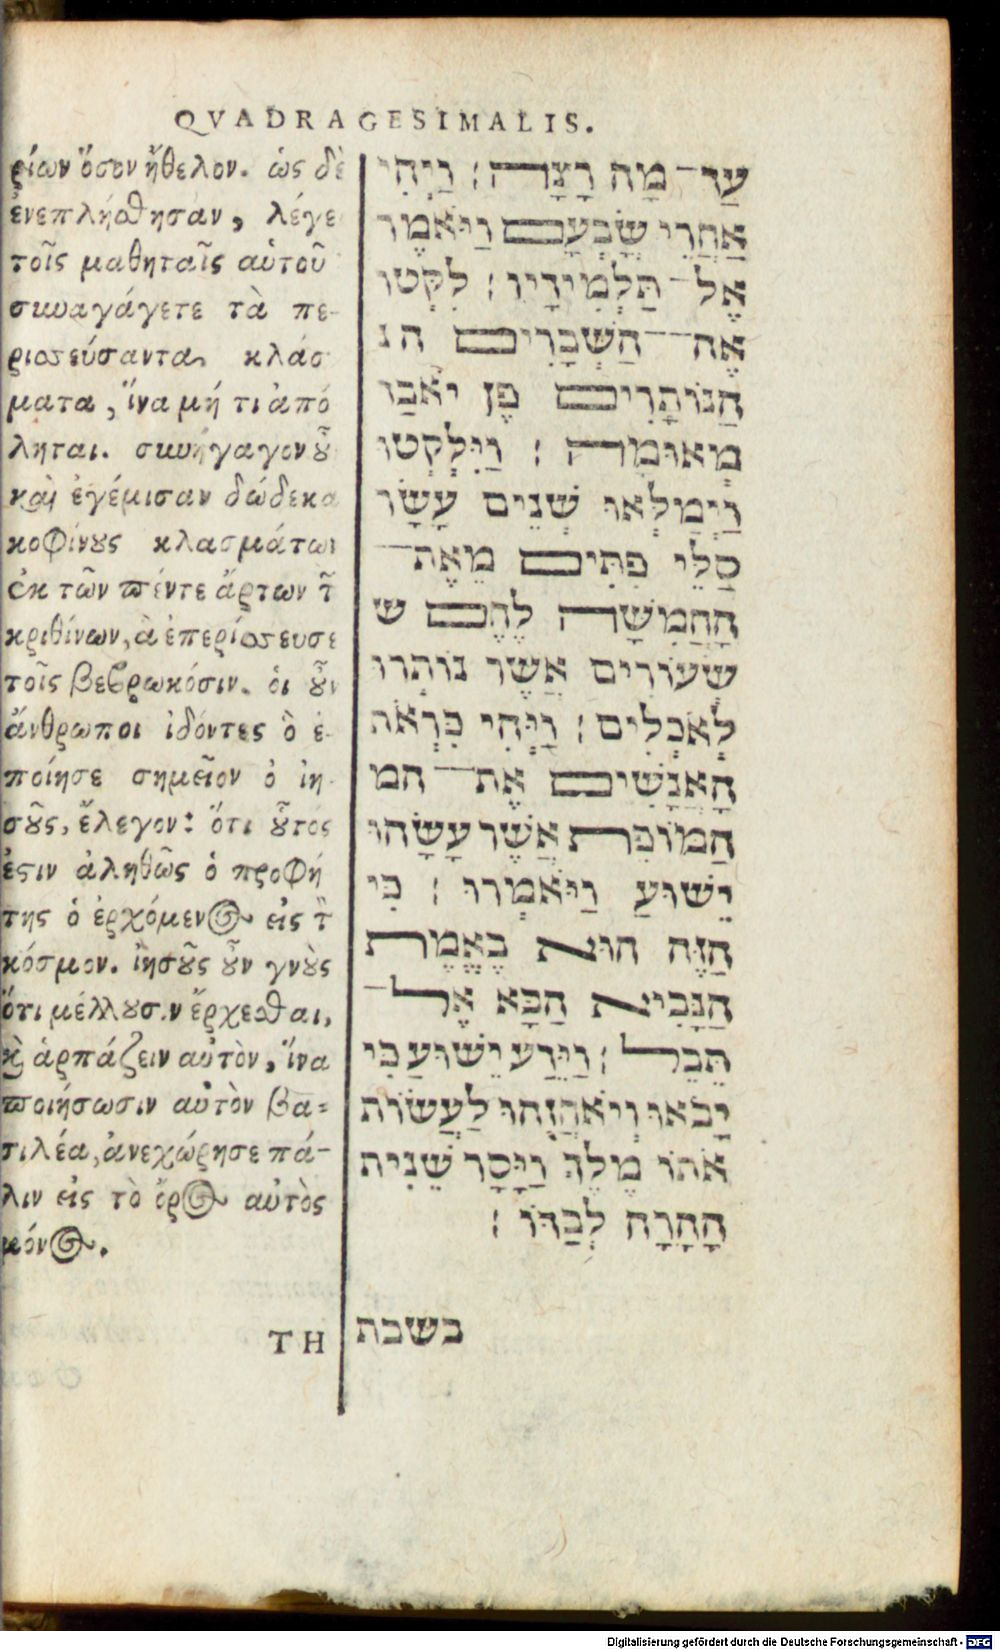 QVADRAGESIMALIS.
ρίων ὅσον ἤθελον. ὡς δὲ
ἐνεπλήσθησαν, λέγε
τοῖς μαθηταῖς αὐτοῦ
συναγάγετε τὰ πε-
ριοσεύσαντα κλάσ
ματα, ἵνα μή τι ἀπό
ληται. συνήγαγον οὖ
καὶ ἐγέμισαν δώδεκα
κοφίνους κλασμάτων
ἐκ τῶν πέντε ἄρτων τ̃
κριθίνων, ἃ ἐπερίσσευσε
τοῖς βεβρωκόσιν. οἱ οὖν
ἄνθρωποι ἰδόντες ὃ ἐ-
ποίησε σημεῖον ὁ ἰη-
σοῦς, ἔλεγον: ὅτι οὗτος
ἐστιν ἀληθῶς ὁ προφή
της ὁ ἐρχόμενος εἰς τ̀
κόσμον. ἰησοῦς οὖν γνοὺς
ὅτι μέλλουσιν ἔρχεσθαι,
καὶ ἁρπάζειν αὐτὸν, ἵνα
ποιήσωσιν αὐτὸν βα=
σιλέα, ἀνεχώρησε πά-
λιν εἰς τὸ ὄρος αὐτὸς
μόνος.
TH
עַד־ מָה רָצָה׃ וַיְהִי
אַחֲרֵי שָׂבְעָם וַיֹּאמֶר
אֶל־ תַּלְמִידָיו׃ לִקְטוּ
אֶת־ הַשְּׁבָרִים הנ
הַנּוֹתָרִים פֶּן יֹאבַּו
מְאוּמָה׃ וַיִּלְקְטוּ
וַיְמַלְאוּ שְׁנֵים עָשָׂר
סַלֵּי פִּתִּים מֵאֶת־
הַחֲמִשָּׁה לֶחֶם ש
שְׂעוֹרִים אֲשֶׁר נוֹתְרוּ
לְאֹכְלִים׃ וַיְּהִי כִּרְאֹת
הָאֲנָשִׁים אֶת־ המ
הַמּוֹפֵת אֲשֶׁר עָשָׂהוּ
יֵשׁוּעַ וַיֹּאמְרוּ׃ כִּי
הַזֶּה הוּא בֶּאֱמֶת
הַנָּבִיא הַבָּא אֶל־
תֵּבֵל׃ וַיֵּדַע יֵשׁוּעַ כִּי
יָבֹאוּ וְיֹאחֲזֻהוּ לַעֲשׂוֹת
אֹתוֹ מֶלֶךְ וַיָּסָר שֵׁנִית
הָהָרָה לְבַדּוֹ׃
בשבת
Digitalisierung gefördert durch die Deutsche Forschungsgemeinschaft - DFG